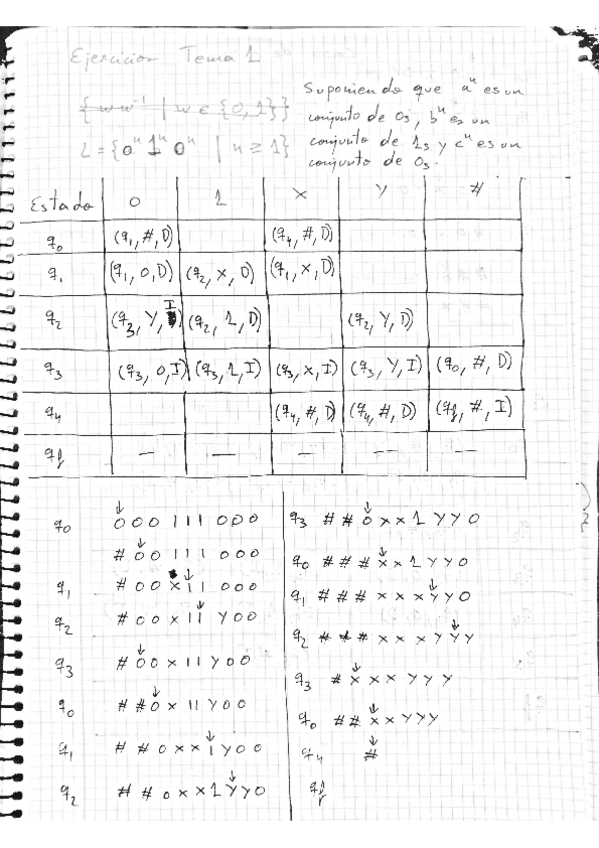 Ejercicios Tema 1
{ww⁻¹ | w ∈ {0,1}}
L = {0ⁿ 1ⁿ 0ⁿ | n ≥ 1}
Suponiendo que aⁿ es un
conjunto de 0s, bⁿ es un
conjunto de 1s y cⁿ es un
conjunto de 0s.
Estado 0 1 X Y #
q₀ (q₁, #, D) (q₄, #, D)
q₁ (q₁, 0, D) (q₂, X, D) (q₁, X, D)
q₂ (q₃, Y, I) (q₂, 1, D) (q₂, Y, D)
q₃ (q₃, 0, I) (q₃, 1, I) (q₃, X, I) (q₃, Y, I) (q₀, #, D)
q₄ (q₄, #, D) (q₄, #, D) (q_f, #, I)
q_f — — — — —
q₀ 0 0 0 1 1 1 0 0 0
# 0 0 1 1 1 0 0 0
q₁ # 0 0 X 1 1 0 0 0
q₂ # 0 0 X 1 1 Y 0 0
q₃ # 0 0 X 1 1 Y 0 0
q₀ # # 0 X 1 1 Y 0 0
q₁ # # 0 X X 1 Y 0 0
q₂ # # 0 X X 1 Y Y 0
q₃ # # 0 X X 1 Y Y 0
q₀ # # # X X 1 Y Y 0
q₁ # # # X X X Y Y 0
q₂ # # # X X X Y Y Y
q₃ # X X X Y Y Y
q₀ # # X X Y Y Y
q₄ #
q_f